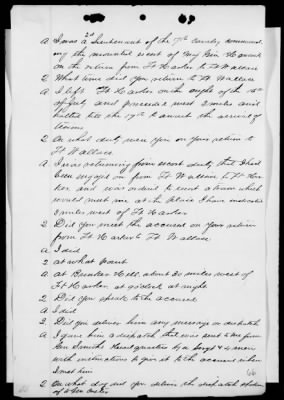 A I was a 2d Lieutenant of the 7th Cavalry commanding
the mounted escort of Maj Gen Hancock
on the return from Ft Harker to Ft Wallace
Q What time did you return to Ft Wallace
A I left Ft Harker on the night of the 16th
of July and proceeded west 3 miles and
halted till the 17th to await the arrival of
teams
Q On what duty were you on your return to
Ft Wallace
A I was returning from escort duty that I had
been engaged on from Ft Wallace to Ft Har-
ker and was ordered to escort a train which
would meet me at the place I have indicated
3 miles west of Ft Harker
Q Did you meet the accused on your return
from Ft Harker to Ft Wallace
A I did
Q At what point
A At Bunker Hill about 30 miles west of
Ft Harker at 9 o'clock at night
Q Did you speak to the accused
A I did
Q Did you deliver him any message or dispatch
A I gave him a dispatch that was sent to me from
Gen Smith's Head quarters by a Sergt & 4 men
with instructions to give it to the accused when
I met him
Q On what day did you deliver the dispatch spoken
of to Gen Custer
66